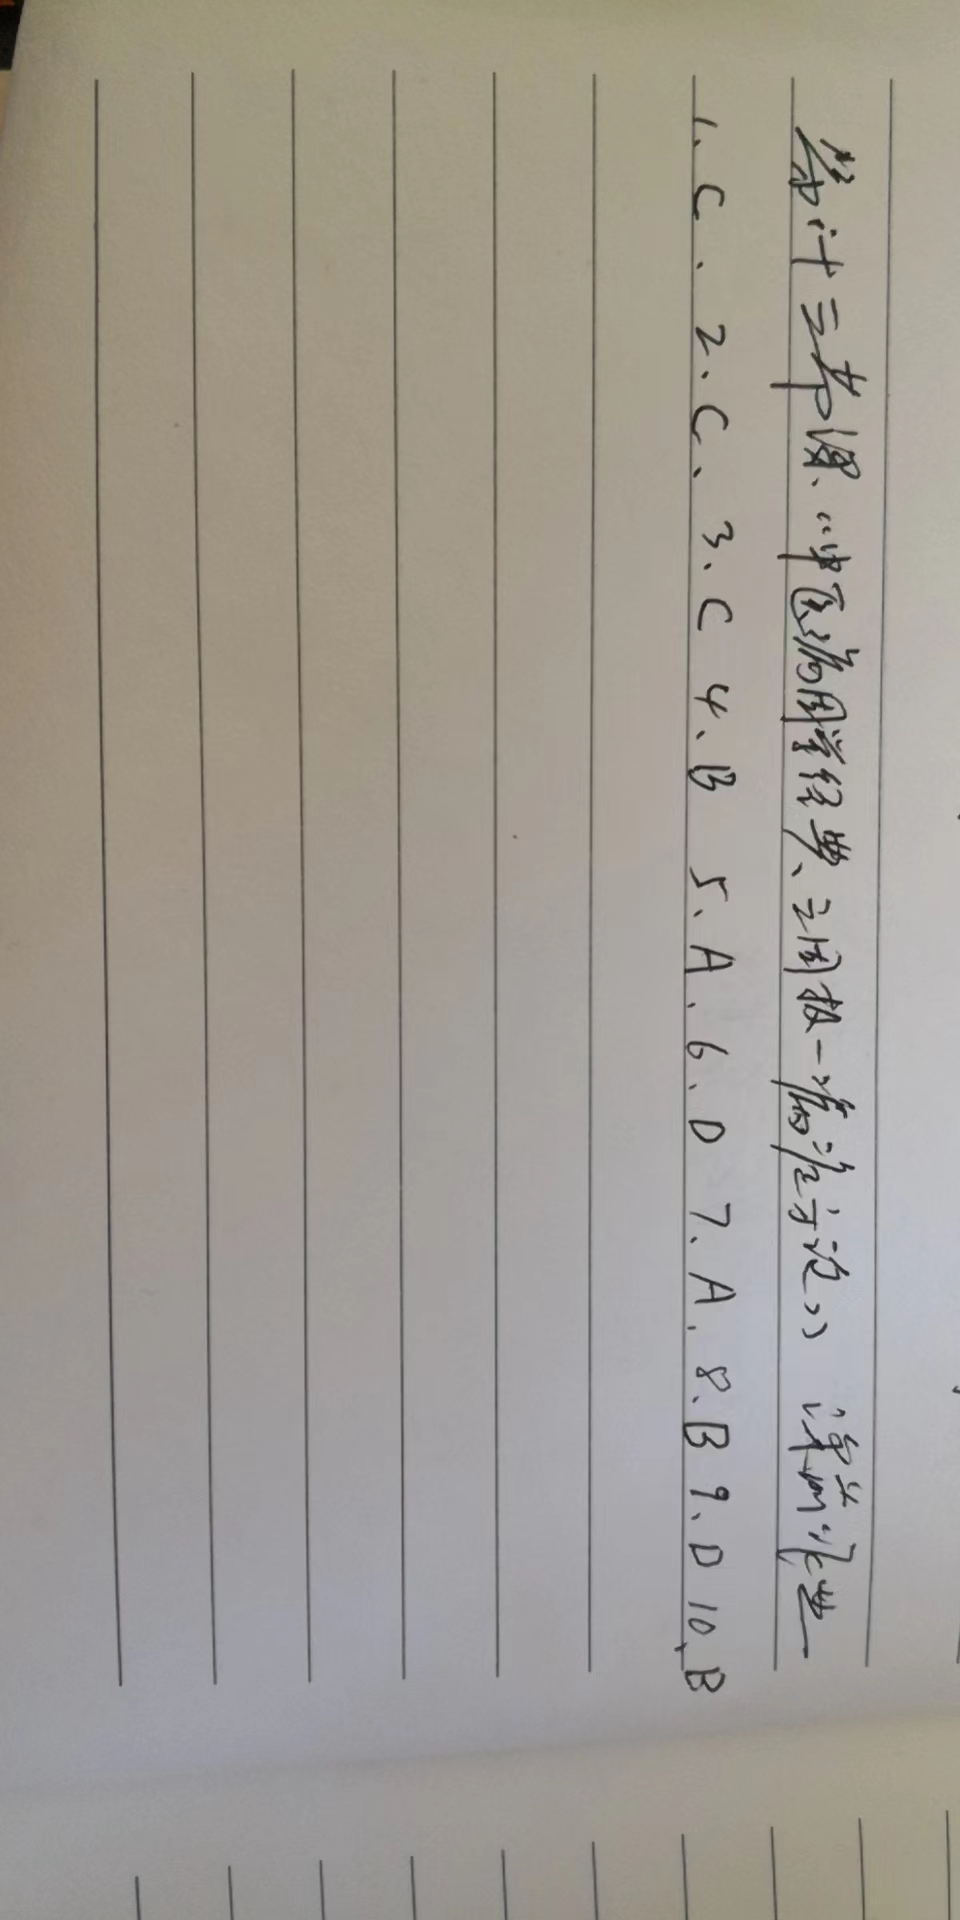 第廿三节课、"中医病因学经典、三因极一病证方论" 课前作业
1、C . 2、C、 3、C 4、B 5、A . 6、D 7、A . 8、B 9、D 10、B